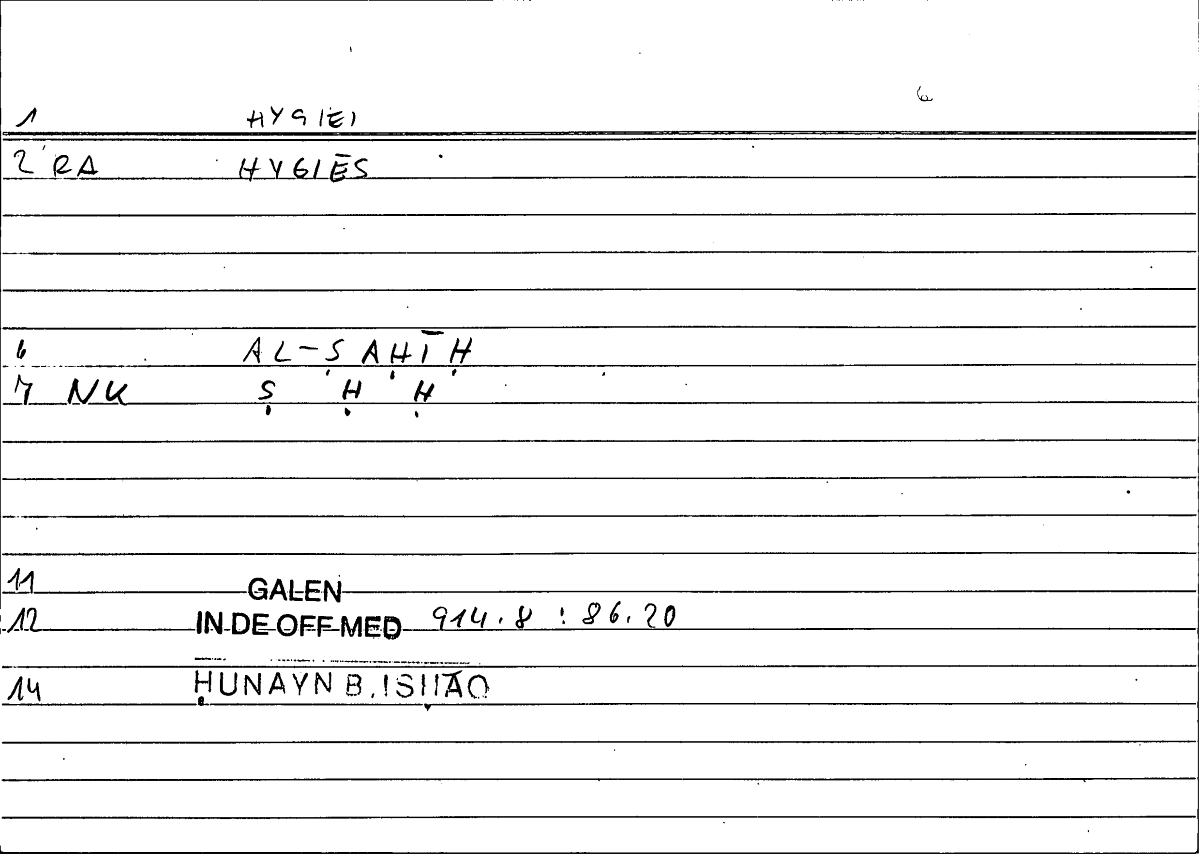 6
1 HYGIEI
2 RA HYGIĒS
6 AL-ṢAḤĪḤ
7 NK Ṣ Ḥ Ḥ
11 GALEN
12 IN DE OFF MED 914.8 : 86.20
14 ḤUNAYN B. ISḤĀQ